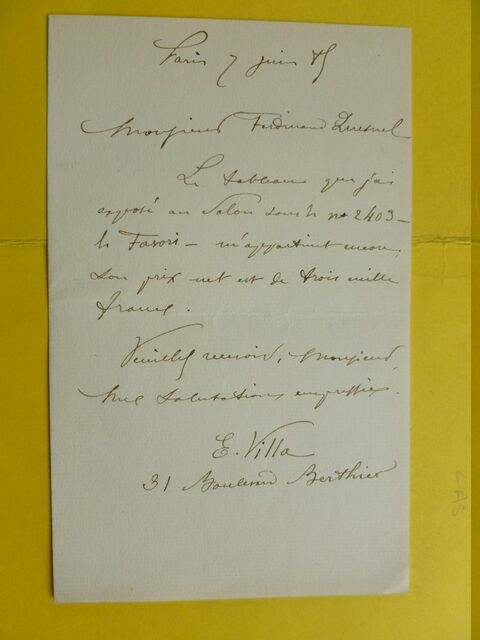 Paris 7 juin 85
Monsieur Ferdinand Quesnel
Le tableau que j'ai
exposé au Salon sous le n° 2403 –
le Favori – m'appartient encore,
son prix net est de trois mille
francs.
Veuillez recevoir, Monsieur,
mes salutations empressées.
E. Villa
31 Boulevard Berthier
CAS